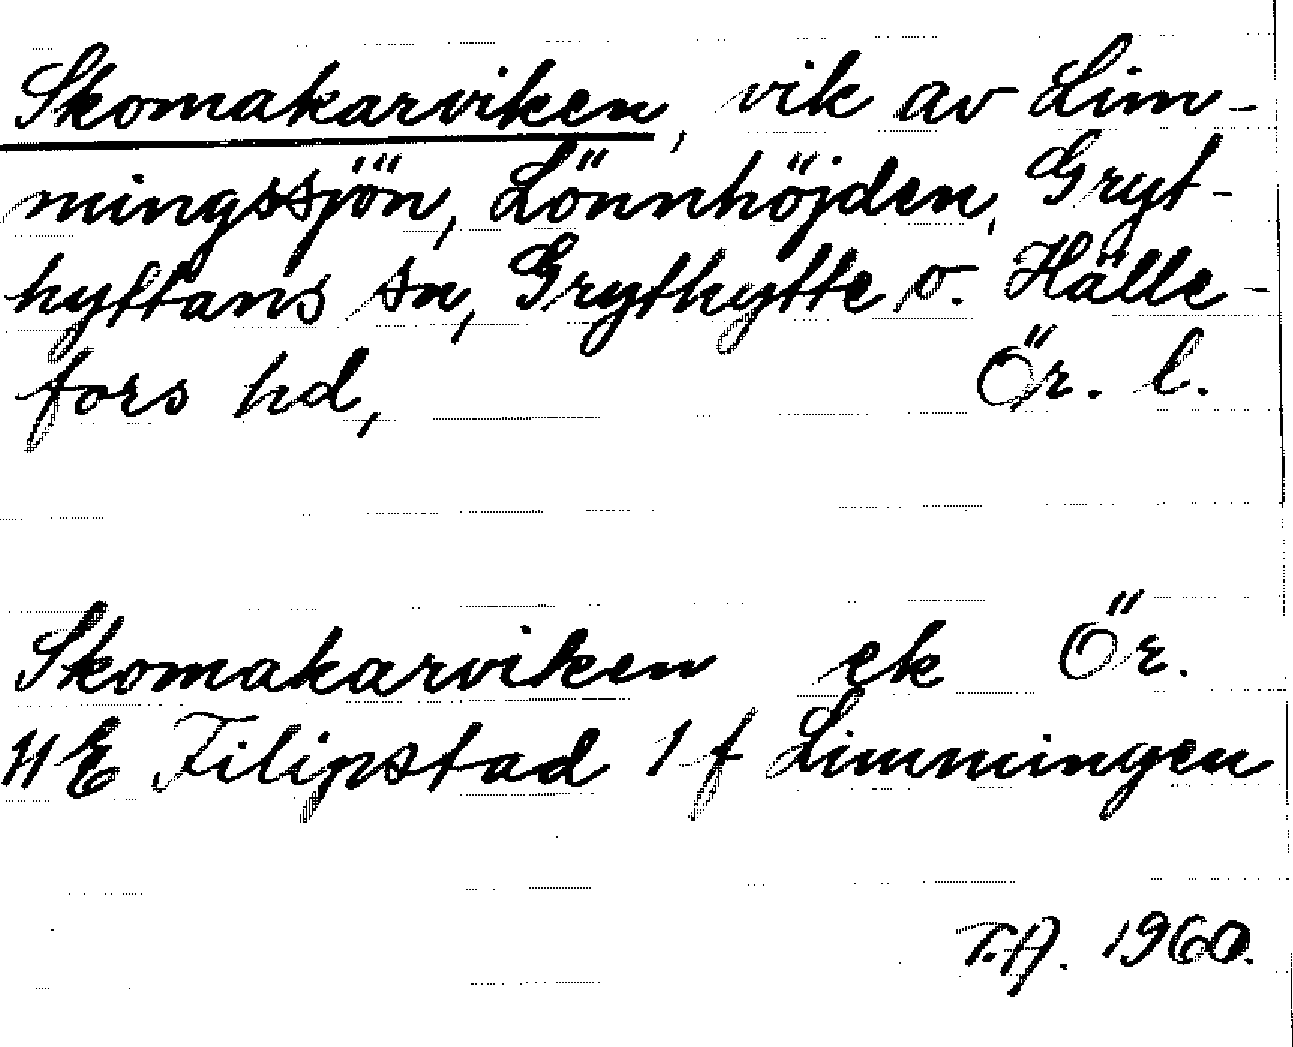 Skomakarviken, vik av Lim-
mingssjön, Lönnhöjden, Gryt-
hyttans sn, Grythytte o. Hälle-
fors hd, Ör. l.
Skomakarviken ek Ör.
11 E Filipstad 1 f Limmingen
T.A. 1960.